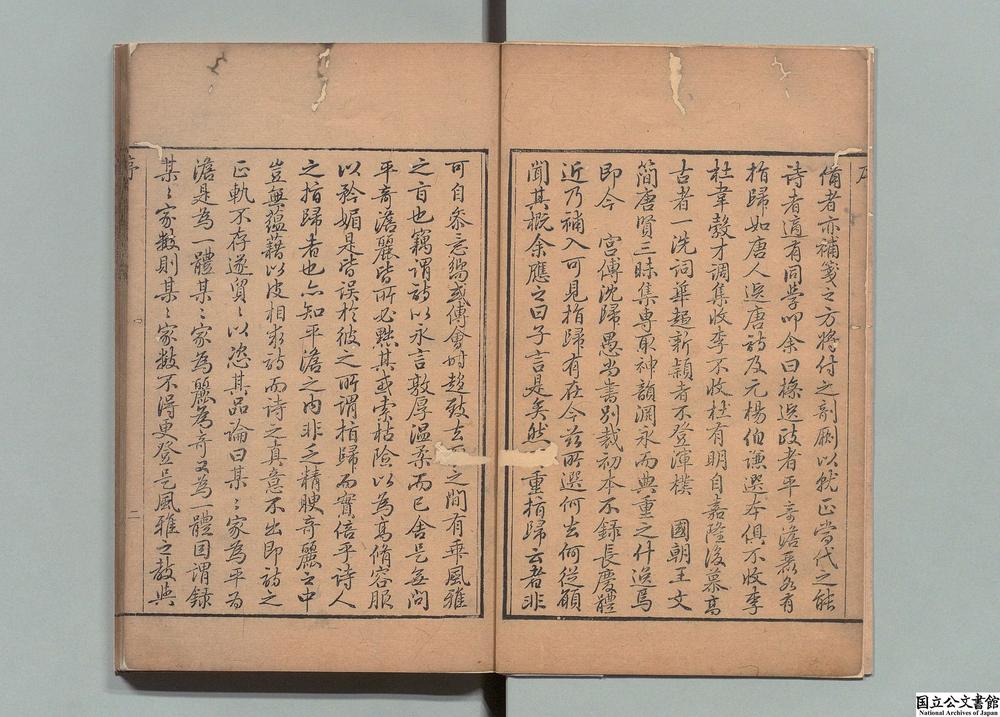 備者亦補箋之方將付之剞劂以就正當代之能
詩者適有同學叩余曰操選政者平奇澹麗各有
指歸如唐人選唐詩及元楊伯謙選本俱不收李
杜韋縠才調集收李不收杜有明自嘉隆後慕高
古者一洗詞華趨新穎者不登渾樸 國朝王文
簡唐賢三昧集專取神韻淵永而典重之什逸焉
即今 宮傅沈歸愚尚書別裁初本不錄長慶體
近乃補入可見指歸有在今茲所選何去何從願
聞其概余應之曰子言是矣然重指歸云者非
可自參意嫣或傳會時趨致去之間有乖風雅
之旨也竊謂詩以永言敦厚溫柔而已舍是無問
平奇澹麗皆所必黜其或索枯險以為高脩容服
以矜媚是皆誤於彼之所謂指歸而實倍乎詩人
之指歸者也亦知平澹之內非乏精腴奇麗之中
豈無蘊藉以皮相求詩而詩之真意不出即詩之
正軌不存遂貿貿以恣其品論曰某某家為平為
澹是為一體某某家為麗為奇又為一體因謂錄
某某家數則某某家數不得更登是風雅之教與
序
二
国立公文書館
National Archives of Japan